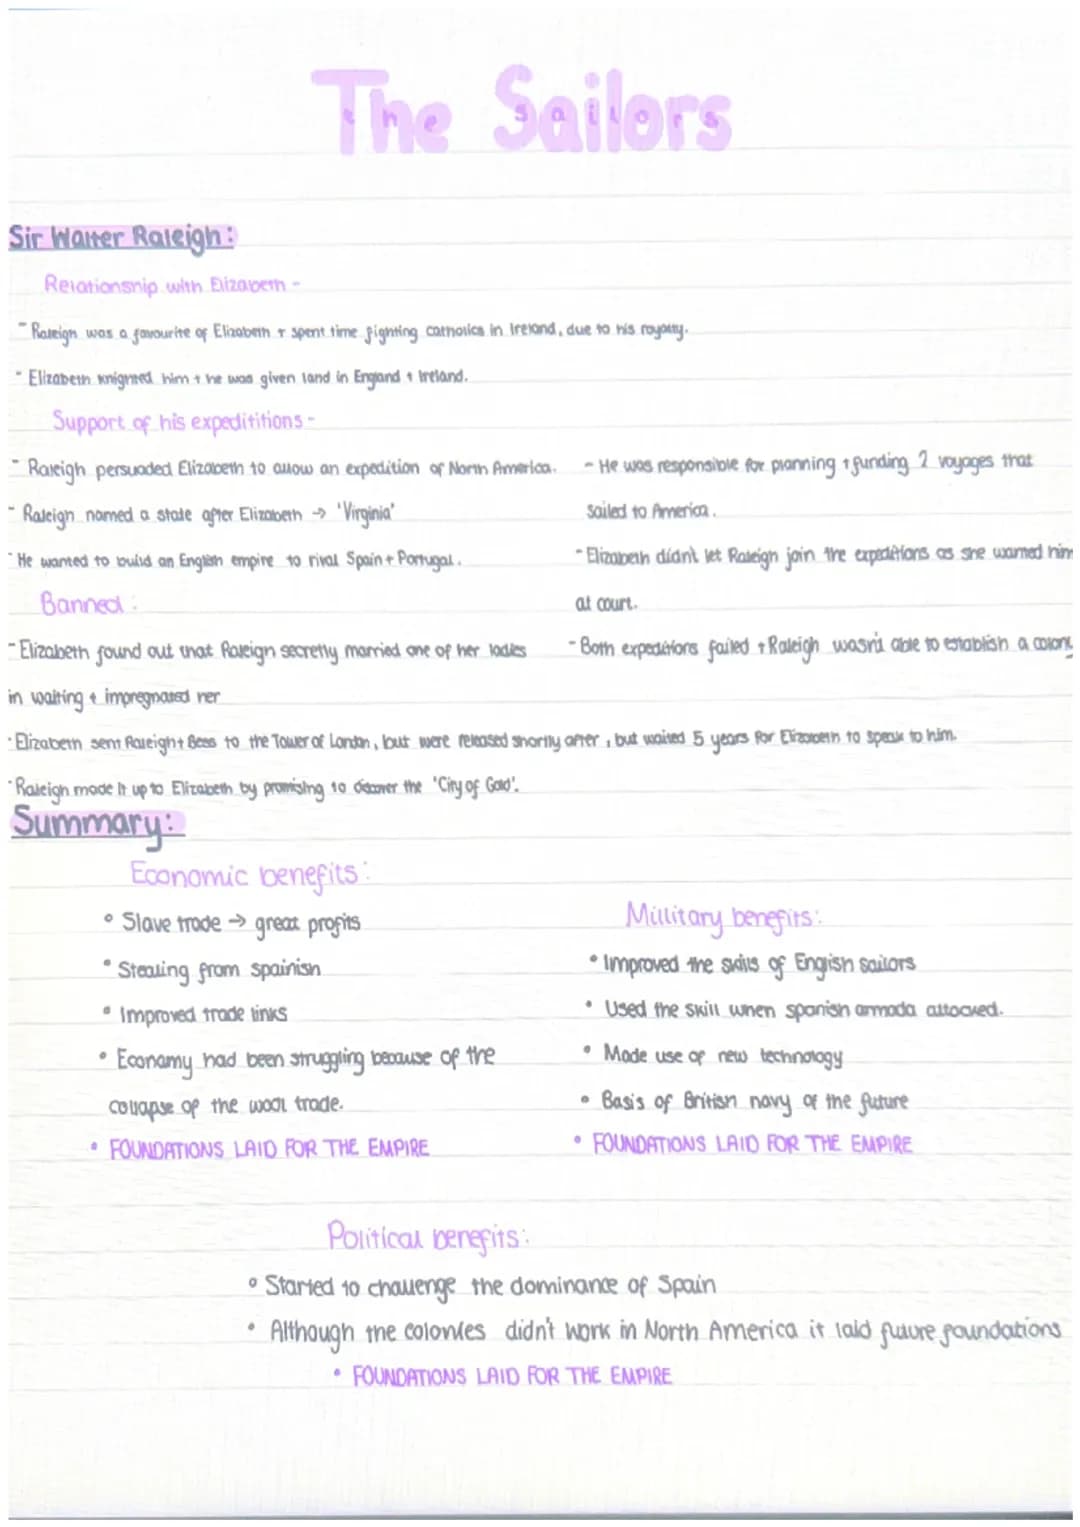 The Sailors
Sir Walter Raleigh:
Relationship with Elizabeth -
- Raleigh was a favourite of Elizabeth + spent time fighting catholics in Ireland, due to his royalty.
- Elizabeth knighted him + he was given land in England + Ireland.
Support of his expeditions -
- Raleigh persuaded Elizabeth to allow an expedition of North America.
- Raleigh named a state after Elizabeth → 'Virginia'
- He wanted to build an English empire to rival Spain + Portugal.
- He was responsible for planning + funding 2 voyages that
sailed to America.
- Elizabeth didn't let Raleigh join the expeditions as she wanted him
at court.
- Both expeditions failed + Raleigh wasn't able to establish a colony
Banned:
- Elizabeth found out that Raleigh secretly married one of her ladies
in waiting + impregnated her
- Elizabeth sent Raleigh + Bess to the Tower of London, but were released shortly after, but waited 5 years for Elizabeth to speak to him.
- Raleigh made it up to Elizabeth by promising to discover the 'City of Gold'.
Summary:
Economic benefits:
• Slave trade → great profits
• Stealing from spainish
• Improved trade links
• Economy had been struggling because of the
collapse of the wool trade.
• FOUNDATIONS LAID FOR THE EMPIRE
Millitary benefits:
• Improved the skills of English sailors
• Used the skill when spanish armada attacked.
• Made use of new technology
• Basis of British navy of the future
• FOUNDATIONS LAID FOR THE EMPIRE
Political benefits:
• Started to challenge the dominance of Spain
• Although the colonies didn't work in North America it laid future foundations
• FOUNDATIONS LAID FOR THE EMPIRE